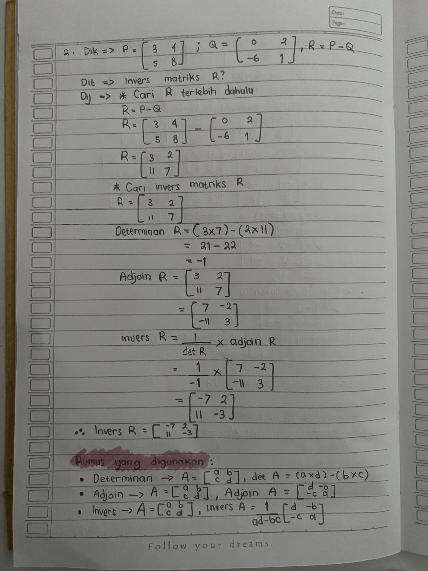 Date:
Page:
2. Dik => P = [3 4 ; 5 8] ; Q = [0 2 ; -6 1], R = P-Q
Dit => Invers matriks R?
Dij => * Cari R terlebih dahulu
R = P-Q
R = [3 4 ; 5 8] - [0 2 ; -6 1]
R = [3 2 ; 11 7]
* Cari invers matriks R
R = [3 2 ; 11 7]
Determinan R = (3x7)-(2x11)
= 21-22
= -1
Adjoin R = [3 2 ; 11 7]
= [7 -2 ; -11 3]
invers R = 1/det R x adjoin R
= 1/-1 x [7 -2 ; -11 3]
= [-7 2 ; 11 -3]
∴ Invers R = [-7 2 ; 11 -3]
Rumus yang digunakan:
• Determinan → A = [a b ; c d], det A = (axd)-(bxc)
• Adjoin → A = [a b ; c d], Adjoin A = [d -b ; -c a]
• Invert → A = [a b ; c d], invers A = 1/ad-bc [d -b ; -c a]
Follow your dreams.